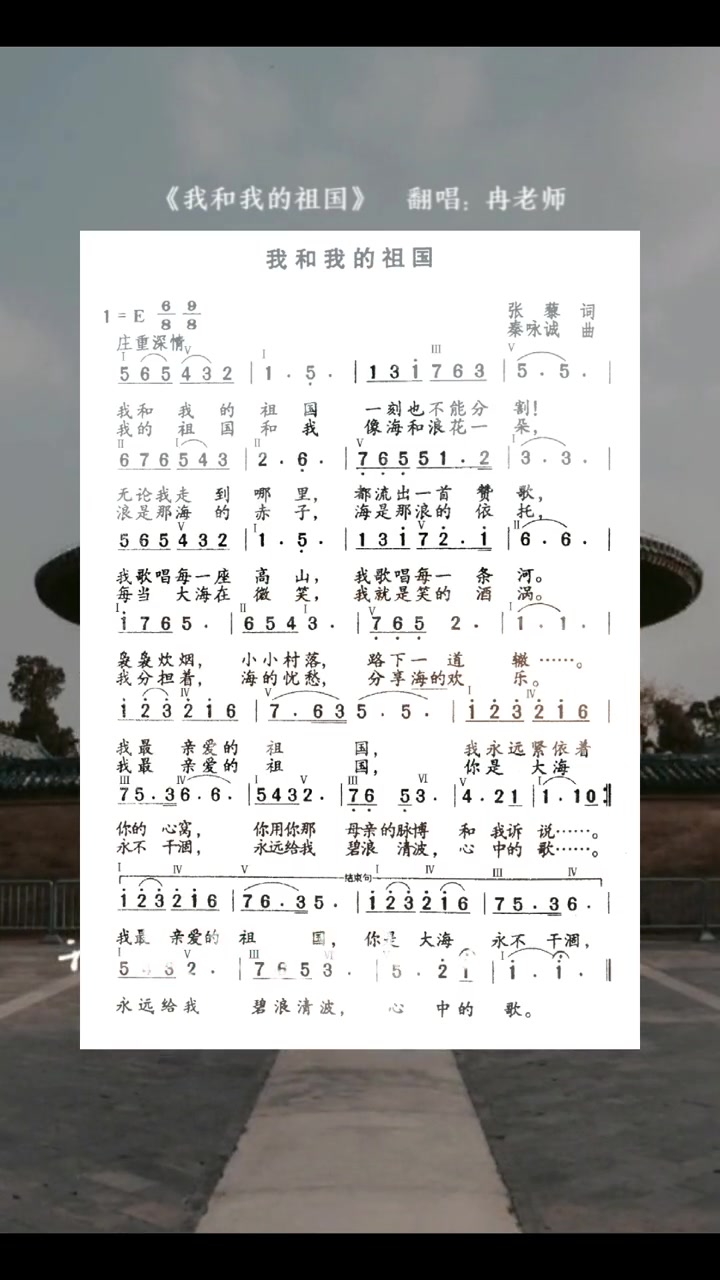 《我和我的祖国》 翻唱：冉老师
我和我的祖国
1 = E 6/8 9/8
张藜 词
秦咏诚 曲
庄重深情
I V I III V
5 6 5 4 3 2 | 1 · 5 · | 1 3 i 7 6 3 | 5 · 5 · |
我和 我 的 祖 国 一刻也不能分 割！
我的 祖 国 和 我 像海和浪花一 朵，
II I II V I
6 7 6 5 4 3 | 2 · 6 · | 7 6 5 5 1 · 2 | 3 · 3 · |
无论我走 到 哪 里， 都流出一首 赞 歌，
浪是那海 的 赤 子， 海是那浪的 依 托，
V I V II
5 6 5 4 3 2 | 1 · 5 · | 1 3 i 7 2 · i | 6 · 6 · |
我歌唱每一座 高 山， 我歌唱每一 条 河。
每当 大海在 微 笑， 我就是笑的 酒 涡。
I II I V I
i 7 6 5 · | 6 5 4 3 · | 7 6 5 2 · | 1 · 1 · |
袅袅炊烟， 小小村落， 路下一 道 辙……。
我分担着， 海的忧愁， 分享海的欢 乐。
I IV V I IV
i 2 3 2 i 6 | 7 · 6 3 5 · 5 · | i 2 3 2 i 6 |
我最 亲爱的 祖 国， 我永远紧依着
我最 亲爱的 祖 国， 你是 大海
III IV I V III VI V I
7 5 · 3 6 · 6 · | 5 4 3 2 · | 7 6 5 3 · | 4 · 2 1 | 1 · 1 0 :|
你的 心窝， 你用你那 母亲的脉搏 和 我诉 说……。
永不 干涸， 永远给我 碧浪 清波， 心 中的 歌……。
I IV V 结束句 I IV III IV
i 2 3 2 i 6 | 7 6 · 3 5 · | i 2 3 2 i 6 | 7 5 · 3 6 · |
我最 亲爱的 祖 国， 你是 大海 永不 干涸，
I V III VI V I
5 4 3 2 · | 7 6 5 3 · | 5 · 2 i | i · i · |
永远给我 碧浪清波， 心 中的 歌。